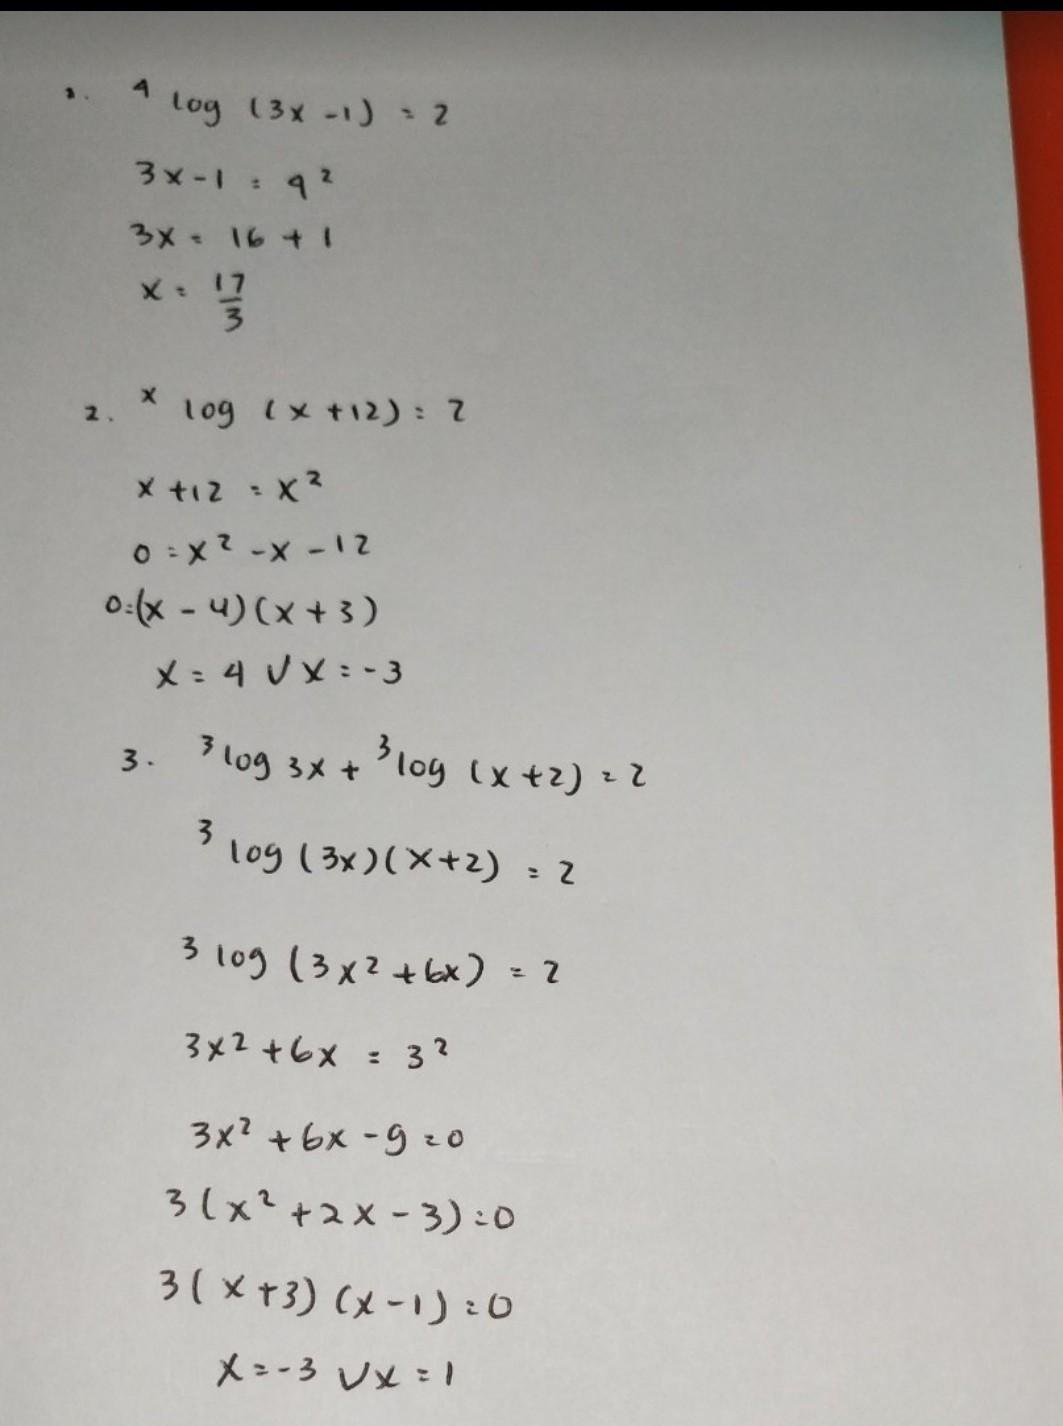 1. ⁴log (3x - 1) = 2
3x - 1 = 4²
3x = 16 + 1
x = 17/3
2. ˣlog (x + 12) = 2
x + 12 = x²
0 = x² - x - 12
0 = (x - 4)(x + 3)
x = 4 ∨ x = -3
3. ³log 3x + ³log (x + 2) = 2
³log (3x)(x + 2) = 2
³log (3x² + 6x) = 2
3x² + 6x = 3²
3x² + 6x - 9 = 0
3(x² + 2x - 3) = 0
3(x + 3)(x - 1) = 0
x = -3 ∨ x = 1